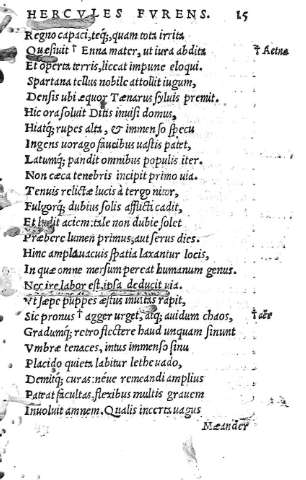 HERCVLES FVRENS. 15
Regno capaci, teq;, quam tota irrita
Quesiuit † Enna mater, ut iura abdita † Aetna
Et operta terris, liceat impune eloqui.
Spartana tellus nobile attollit iugum,
Densis ubi æquor Tænarus syluis premit.
Hic ora soluit Ditis inuisi domus,
Hiatq; rupes alta, & immenso specu
Ingens uorago faucibus uastis patet,
Latumq; pandit omnibus populis iter.
Non cæca tenebris incipit primo uia.
Tenuis relictæ lucis à tergo nitor,
Fulgorq; dubius solis affucti cadit,
Et ludit aciem: tale non dubie solet
Præbere lumen primus, aut serus dies.
Hinc ampla uacuis spatia laxantur locis,
In quæ omne mersum pereat humanum genus.
Nec ire labor est, ipsa deducit uia.
Vt sæpe puppes æstus inuitas rapit,
Sic pronus † agger urget, atq; auidum chaos, † aër
Gradumq; retro flectere haud unquam sinunt
Vmbræ tenaces, intus immenso sinu
Placido quieta labitur lethe uado,
Demitq; curas: néue remeandi amplius
Pateat facultas, flexibus multis grauem
Inuoluit amnem. Qualis incerta uagus
Mæander